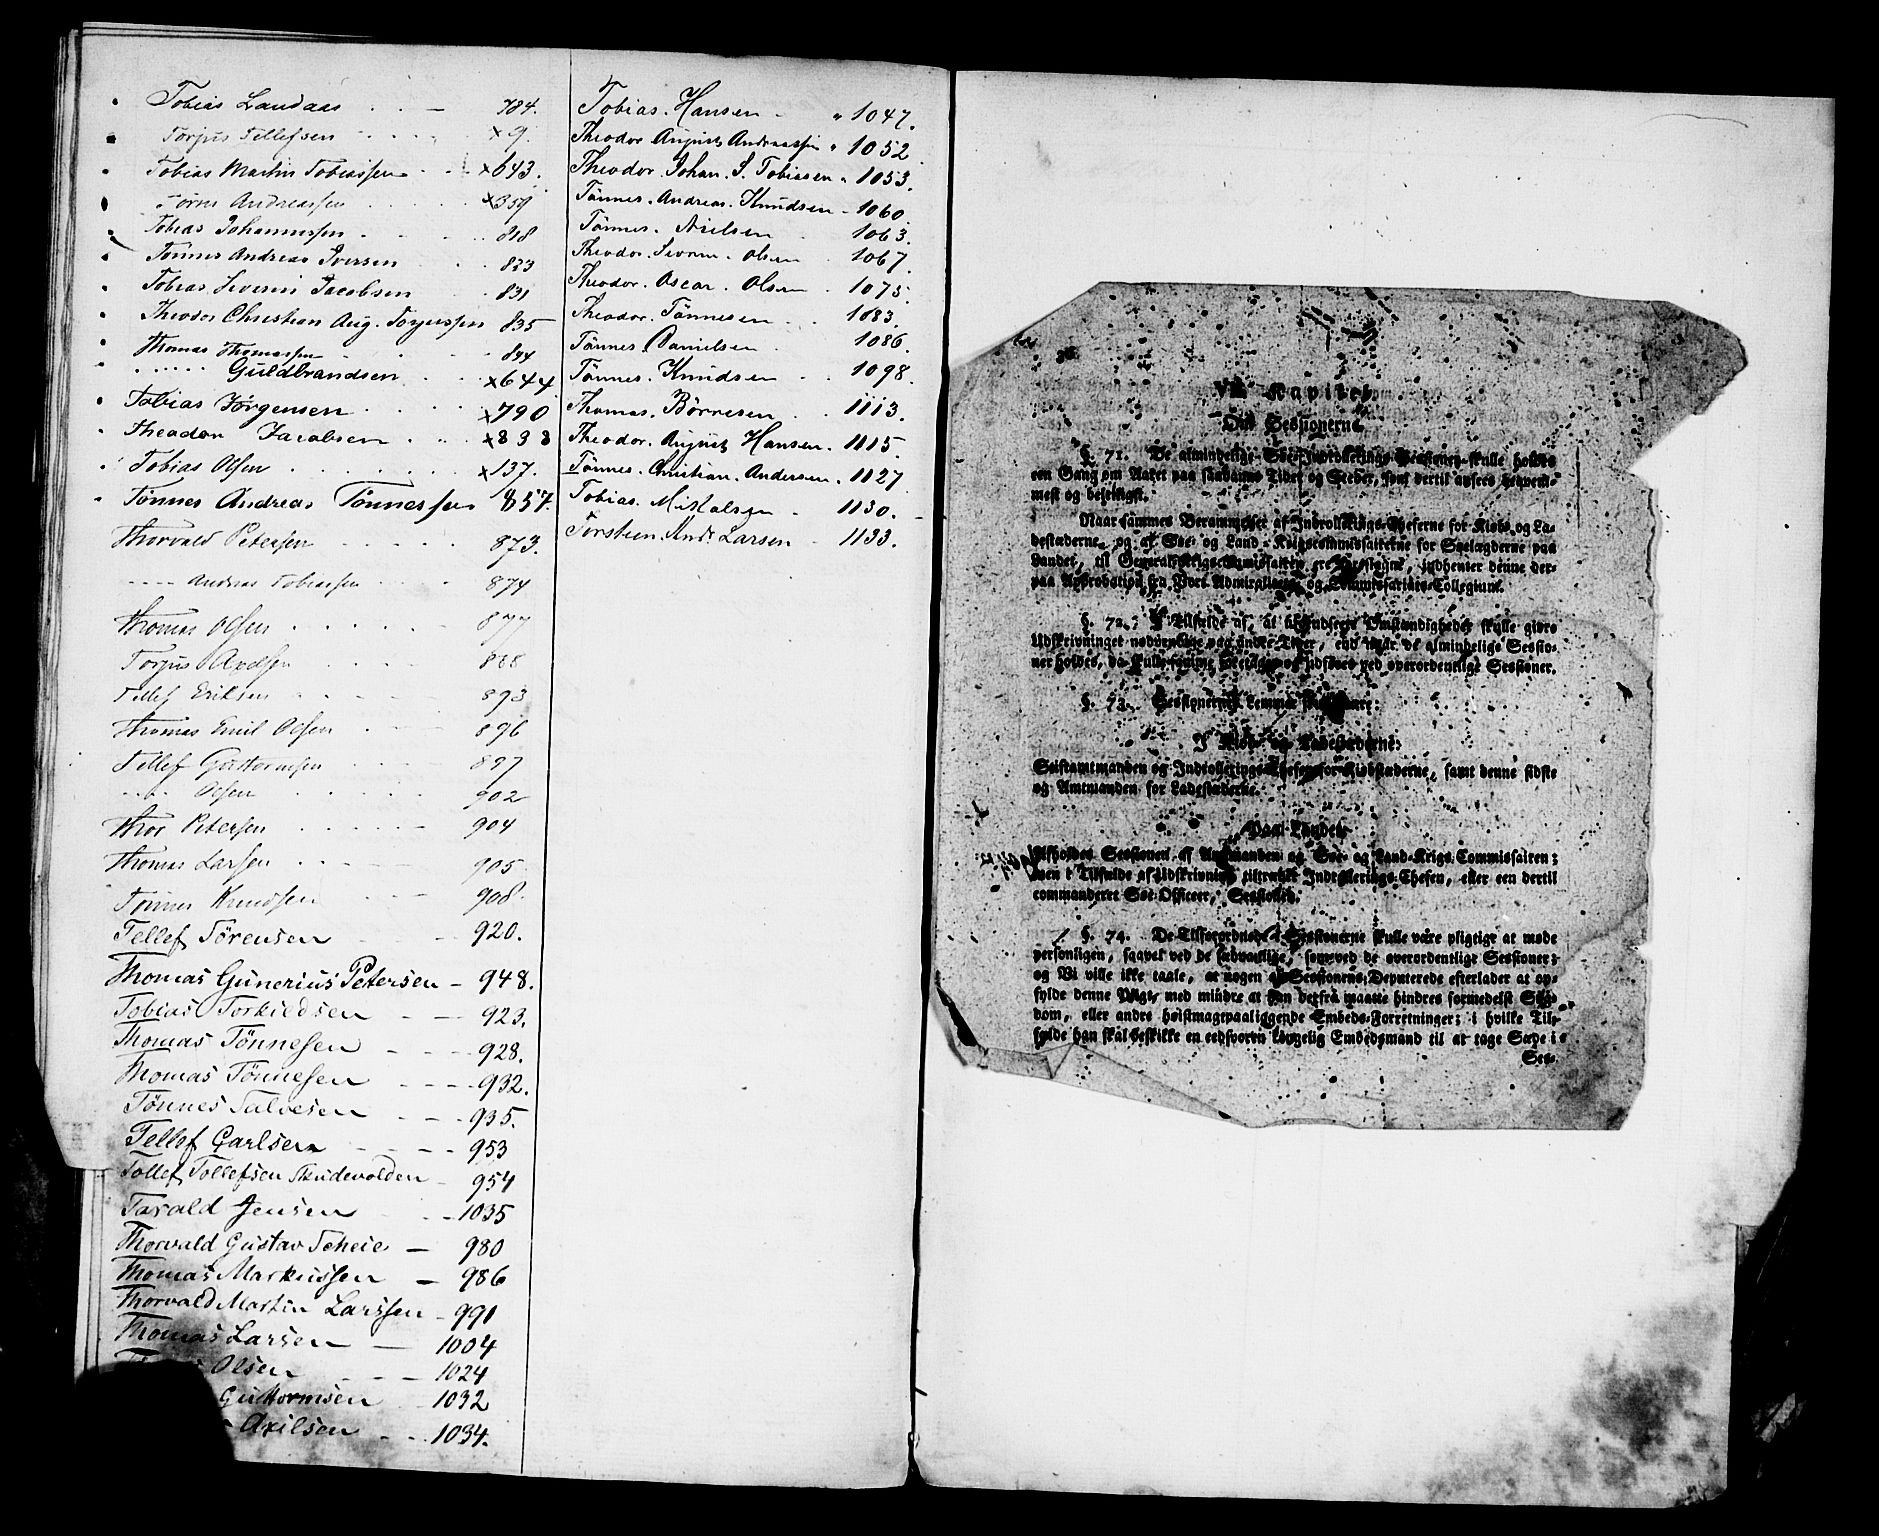 Tobias Landaas . . — 784.
Torjus Tellefsen . . . . x9.
Tobias Martin Tobiassen . . x643.
Andreassen . . . . x359
Tobias Johannessen . . . . 818
Tønnes Andreas Iversen . . 823
Tobias Severin Jacobsen . . 831
Theodor Christian Aug. Torjussen 835
Thomas Thomassen . . . 844
. . . . . . Guldbrandsen . . x644
Tobias Jørgensen . . . . x790
Theodor Jacobsen . . . x833
Tobias Olsen . . . . . . x137.
Tønnes Andreas Tønnessen 857.
Thorvald Petersen . . . . 873.
---- Andreas Tobiassen . . . 874
Thomas Olsen . . . . . 877
Torjus Axelsen . . . . 888
Tellef Eriksen . . . . . 893
Thomas Emil Olsen . . . 896
Tellef Guttormsen . . . . 897
-..- Olsen . . . . . 902
Thor Petersen . . . . . 904
Thomas Larsen . . . . 905
Tønnes Knudsen . . . 908.
Tellef Sørensen . . . 920.
Thomas Gunerius Petersen – 948.
Tobias Torkieldsen - - - 923.
Thomas Tønnesen - - - - 928.
Thomas Tønnesen - - - - 932.
Tønnes Salvesen - - - 935.
Tellef Carlsen - - - - 953
Tollef Tollefsen Skudevolden - 954
Tarald Jensen - - 1035
Thorvald Gustav Scheie — 980
Thomas Markussen — 986
Thorvald Martin Larssen - 991
Thomas Larsen — 1004
Olsen - - - 1024
Guttormsen . 1032
Axilsen - - . 1034.
Tobias. Hansen . „ 1047.
Theodor August Andreassen „ 1052
Theodor. Johan. S. Tobiassen „ 1053.
Tønnes. Andreas. Knudsen - 1060.
Tønnes. Nielsen . 1063.
Theodor. Severin. Olsen . 1067.
Theodor. Oscar. Olsen . 1075.
Theodor. Tønnesen . . 1083.
Tønnes. Danielsen . 1086.
Tønnes. Knudsen . . 1098.
Thomas. Børresen . . 1113.
Theodor. August Hansen . 1115.
Tønnes. Christian. Andersen . 1127
Tobias. Mikalsen . 1130.
Torstein. Andr. Larsen . 1133.
Kapitel.
Om Sessionerne.
§. 71. De almindelige Søe-Indrollerings-Sessioner skulle holdes
een Gang om Aaret paa saadanne Tider og Steder, som dertil ansees beqvem-
mest og beleiligst.
Naar sammes Berammelser af Indrollerings-Cheferne for Kiøb- og La-
destæderne, og af Søe- og Land-Krigscommissairerne for Søelægderne paa
Landet, til General-Krigscommissairen ere indsendte, indhenter denne der-
paa Approbation fra Vort Admiralitets- og Commissariats-Collegium.
§. 72. I Tilfælde af, at indtrufne Omstændigheder skulle giøre
Udskrivninger nødvendige paa andre Tider, end naar de almindelige Sessio-
ner holdes, da skulle samme foretages og tilstaaes ved overordentlige Sessioner.
§. 73. Sessionernes Lemmer skulle være:
I Kiøb- og Ladestæderne:
Stiftamtmanden og Indrollerings-Chefen for Kiøbstæderne, samt denne sidste
og Amtmanden for Ladestæderne.
Paa Landet
Afholdes Sessionen af Amtmanden og Søe- og Land-Krigs-Commissairen;
men i Tilfælde af Udskrivning tiltræder Indrollerings-Chefen, eller een dertil
commanderet Søe-Officeer, Sessionen.
§. 74. De Tilforordnede i Sessionerne skulle være pligtige at møde
personligen, saavel ved de sædvanlige, som ved de overordentlige Sessioner;
og Vi ville ikke taale, at nogen af Sessionens Deputerede efterlader at op-
fylde denne Pligt, med mindre at han derfra maatte hindres formedelst Syg-
dom, eller andre høistmagtpaaliggende Embeds-Forretninger; i hvilke Til-
fælde han skal beskikke en eedsvoren kongelig Embedsmand til at tage Sæde i
Ses-